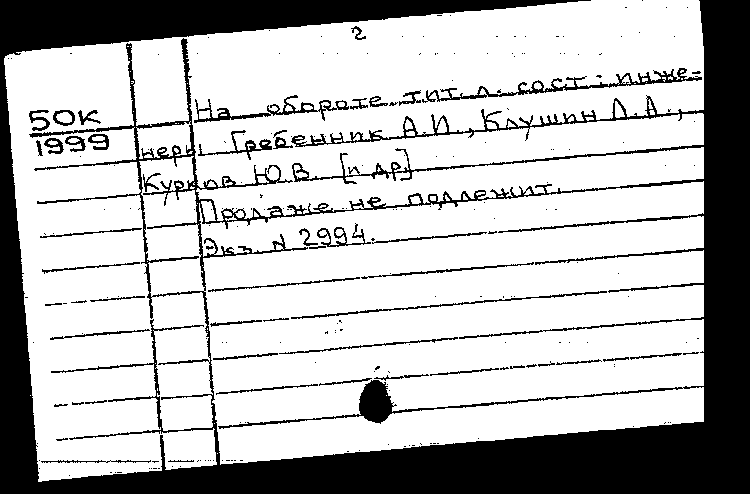 2
50К
1999
На обороте тит. л. сост.: инже-
неры Гребенник А.И., Клушин Л.А.,
Курков Ю.В. [и др.]
Продаже не подлежит.
Экз. N 2994.